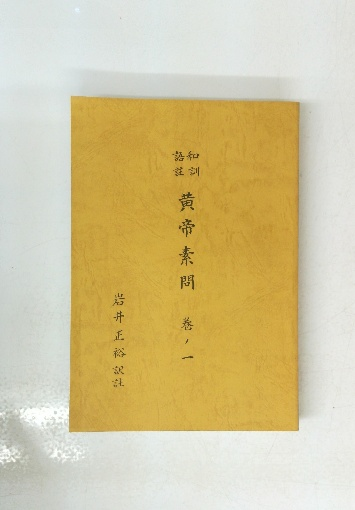 和訓
語註
黄帝素問 巻ノ一
岩井正裕訳註